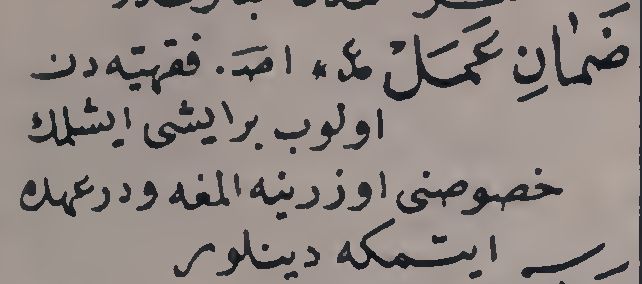 ضَمانِ عَمَلْ ع* اصـ. فقهیه دن
اولوب برایشی ایشلمك
خصوصنی اوزرینه المغه و درعهده
ایتمکه دینلور